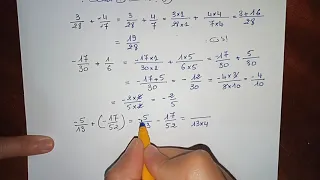 3/28 + -4/-7 = 3/28 + 4/7 = 3×1/28×1 + 4×4/7×4 = 3+16/28
= 19/28
-17/30 + 1/6 = -17×1/30×1 + 1×5/6×5 = -17/30 + 5/30
= -17+5/30 = -12/30 = -4×3/3×10 = -4/10
= -2×2/5×2 = -2/5
-5/13 + (-17/52) = -5/13 - 17/52 = /13×4